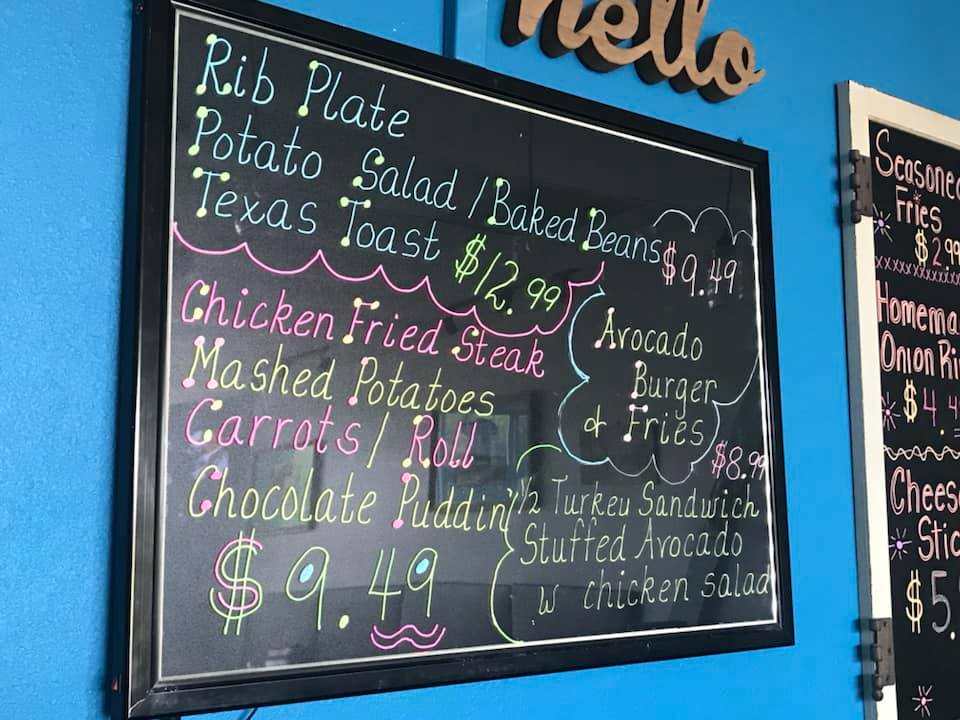 hello
Rib Plate
Potato Salad / Baked Beans
Texas Toast $12.99
Chicken Fried Steak
Mashed Potatoes
Carrots / Roll
Chocolate Puddin'
$9.49
$9.49
Avocado
Burger
& Fries
$8.99
1/2 Turkey Sandwich
Stuffed Avocado
w chicken salad
Seasoned
Fries
$2.99
Homema
Onion Ri
$4.4
Cheese
Stic
$5.